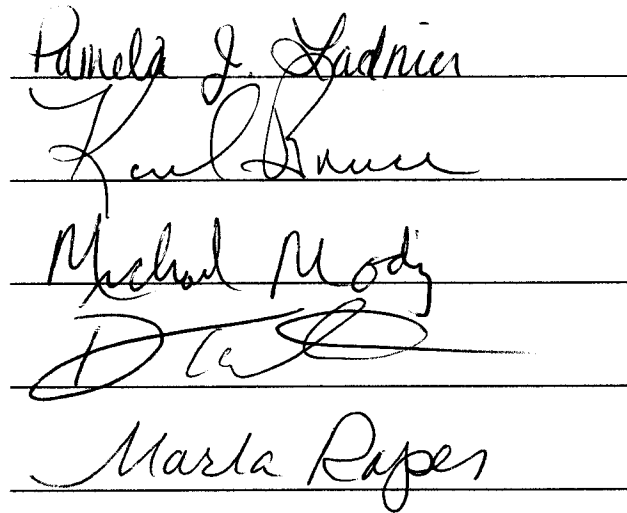 Pamela J. Ladnier
Karl Bruce
Michael Moody
Marla